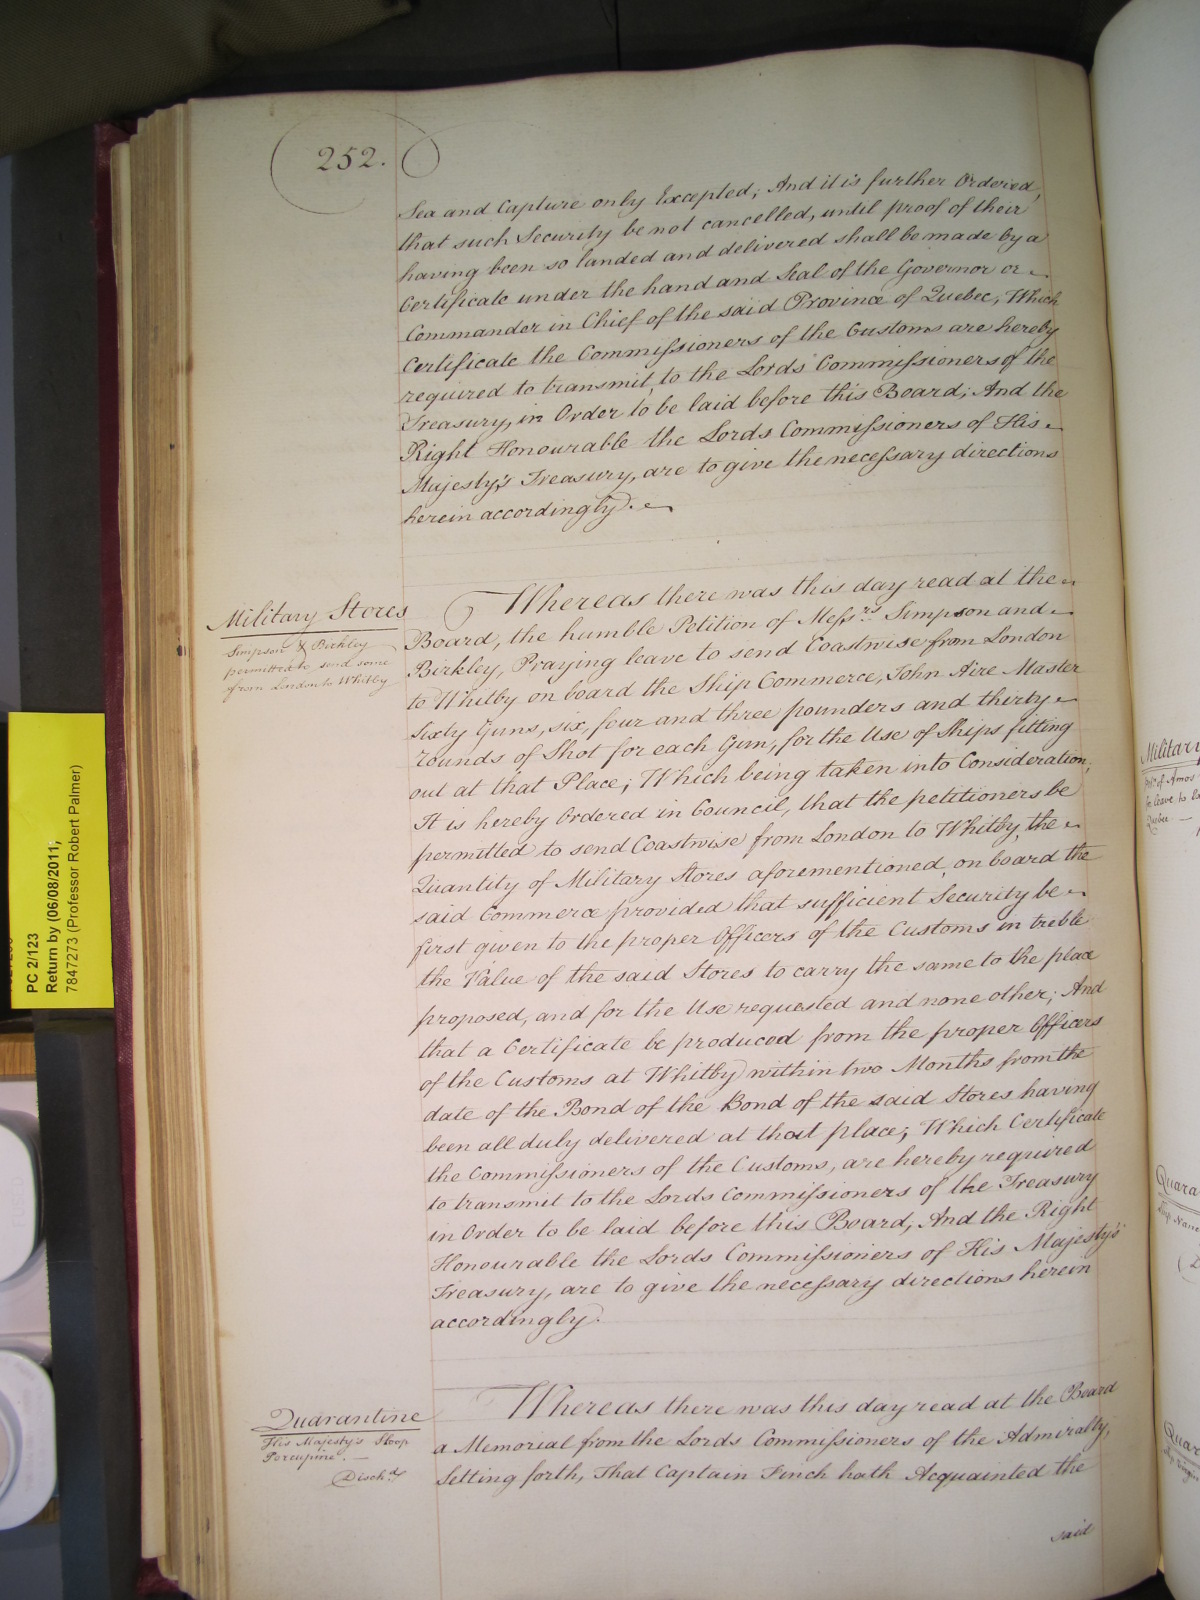 252.
Sea and Capture only Excepted; And it is further Ordered,
that such Security be not cancelled, until proof of their
having been so landed and delivered shall be made by a
Certificate under the hand and Seal of the Governor or
Commander in Chief of the said Province of Quebec, Which
Certificate the Commissioners of the Customs are hereby
required to transmit, to the Lords Commissioners of the
Treasury, in Order to be laid before this Board; And the
Right Honourable the Lords Commissioners of His
Majesty's Treasury, are to give the necessary directions
herein accordingly.
Military Stores
Simpson & Birkley
permitted to send some
from London to Whitby
Whereas there was this day read at the
Board, the humble Petition of Messrs. Simpson and
Birkley, Praying leave to send Coastwise from London
to Whitby on board the Ship Commerce, John Aire Master
Sixty Guns, six, four and three pounders and thirty
rounds of Shot for each Gun, for the Use of Ships fitting
out at that Place; Which being taken into Consideration,
It is hereby Ordered in Council, that the petitioners be
permitted to send Coastwise from London to Whitby, the
Quantity of Military Stores aforementioned, on board the
said Commerce provided that sufficient Security be
first given to the proper Officers of the Customs in treble
the Value of the said Stores to carry the same to the place
proposed, and for the Use requested and none other; And
that a Certificate be produced from the proper Officers
of the Customs at Whitby within two Months from the
date of the Bond of the Bond of the said Stores having
been all duly delivered at that place; Which Certificate
the Commissioners of the Customs, are hereby required
to transmit to the Lords Commissioners of the Treasury
in Order to be laid before this Board, And the Right
Honourable the Lords Commissioners of His Majesty's
Treasury, are to give the necessary directions herein
accordingly.
Quarantine
His Majesty's Sloop
Porcupine.
Dischd.
Whereas there was this day read at the Board
a Memorial from the Lords Commissioners of the Admiralty,
Setting forth, That Captain Finch hath Acquainted the
said
PC 2/123
Return by (06/08/2011;
7847273 (Professor Robert Palmer)
Military
of Amos
leave to
Quebec
Quara
Quar